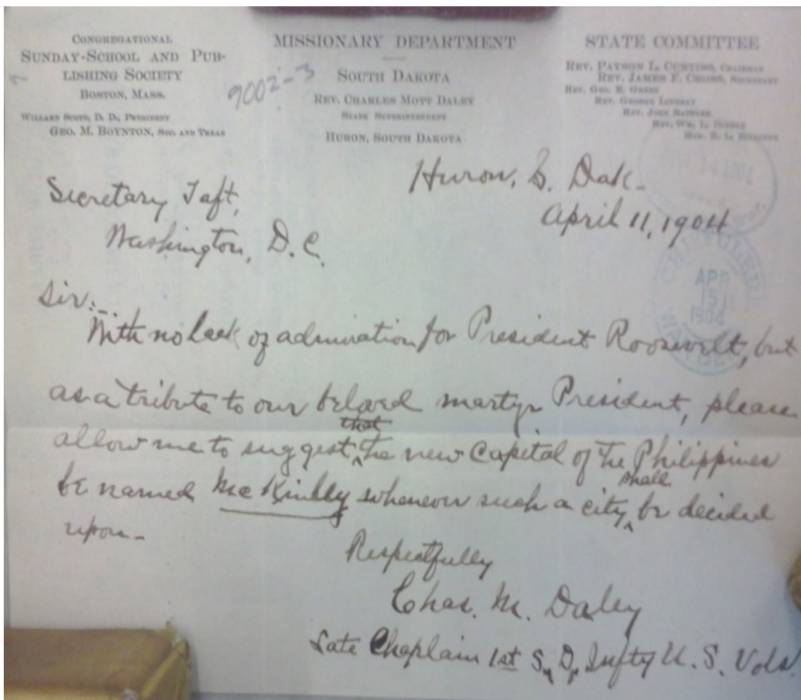 Congregational
Sunday-School and Pub-
lishing Society
Boston, Mass.
Willard Scott, D. D., President
Geo. M. Boynton, Sec. and Treas
9002-3
Missionary Department
South Dakota
Rev. Charles Mott Daley
State Superintendent
Huron, South Dakota
State Committee
Rev. Payson L. Curtiss, Chairman
Rev. James F. Cross, Secretary
Rev. Geo. E. Green
Rev. George
Rev. John
Rev. Wm. L.
Huron, S. Dak.
April 11, 1904
APR
15
1904
Secretary Taft,
Washington, D.C.
Sir:-
With no lack of admiration for President Roosevelt, but
as a tribute to our beloved martyr President, please
that
allow me to suggest ^ the new Capital of the Philippines
shall
be named McKinley whenever such a city ^ be decided
upon-
Respectfully
Chas. M. Daley
Late Chaplain 1st S. D. Infty U. S. Vols.